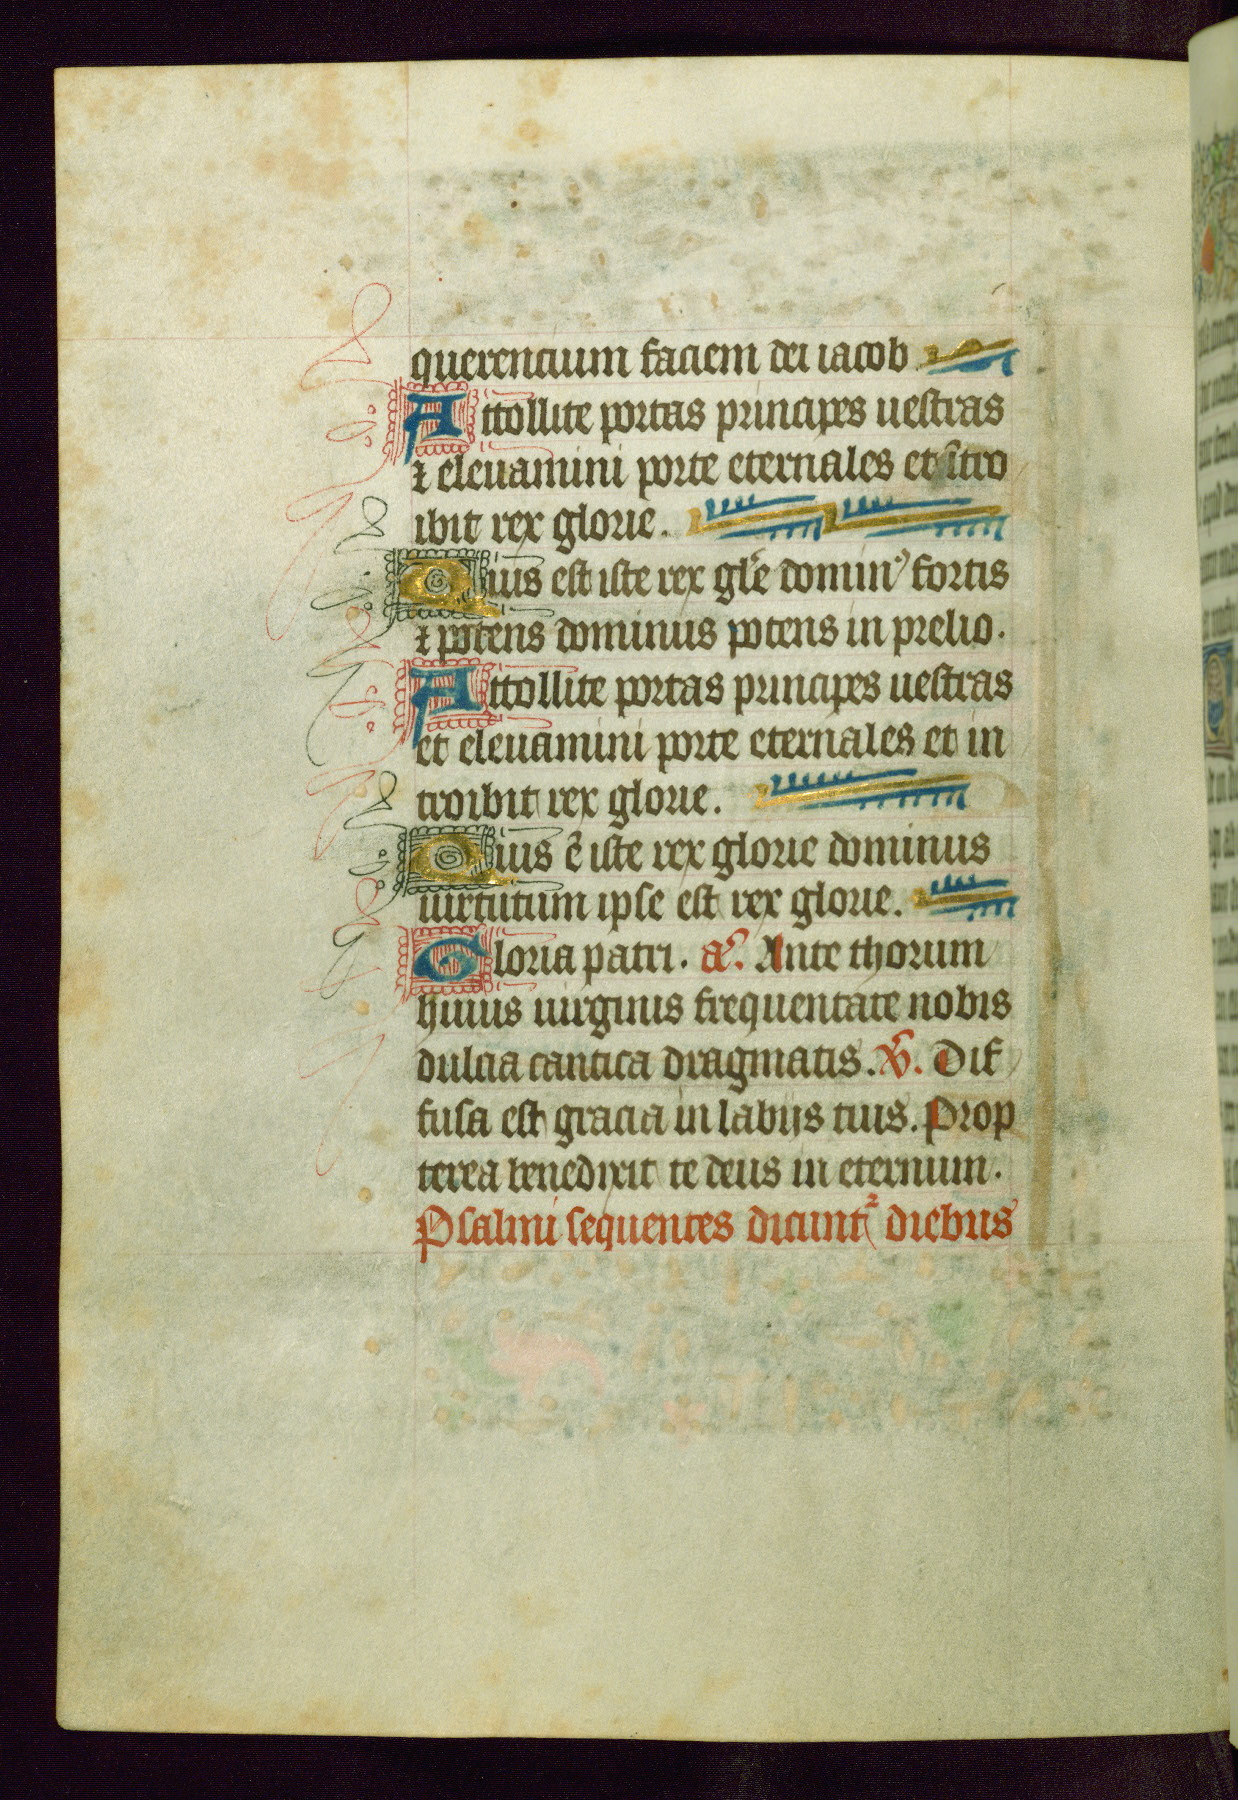 querencium faciem dei iacob
Attollite portas principes uestras
⁊ eleuamini porte eternales et ītro
ibit rex glorie.
Quis est iste rex gl̄e dominꝰ fortis
⁊ potens dominus potens in prelio.
Attollite portas principes uestras
et eleuamini porte eternales et in
troibit rex glorie.
Quis ē iste rex glorie dominus
uirtutum ipse est rex glorie.
Gloria patri. a͞. Ante thorum
huius uirginis frequentate nobis
dulcia cantica dragmatis. V̄. Dif
fusa est gracia in labijs tuis. Prop
terea benedixit te deus in eternum.
Psalmi sequentes dicunt᷑ diebus